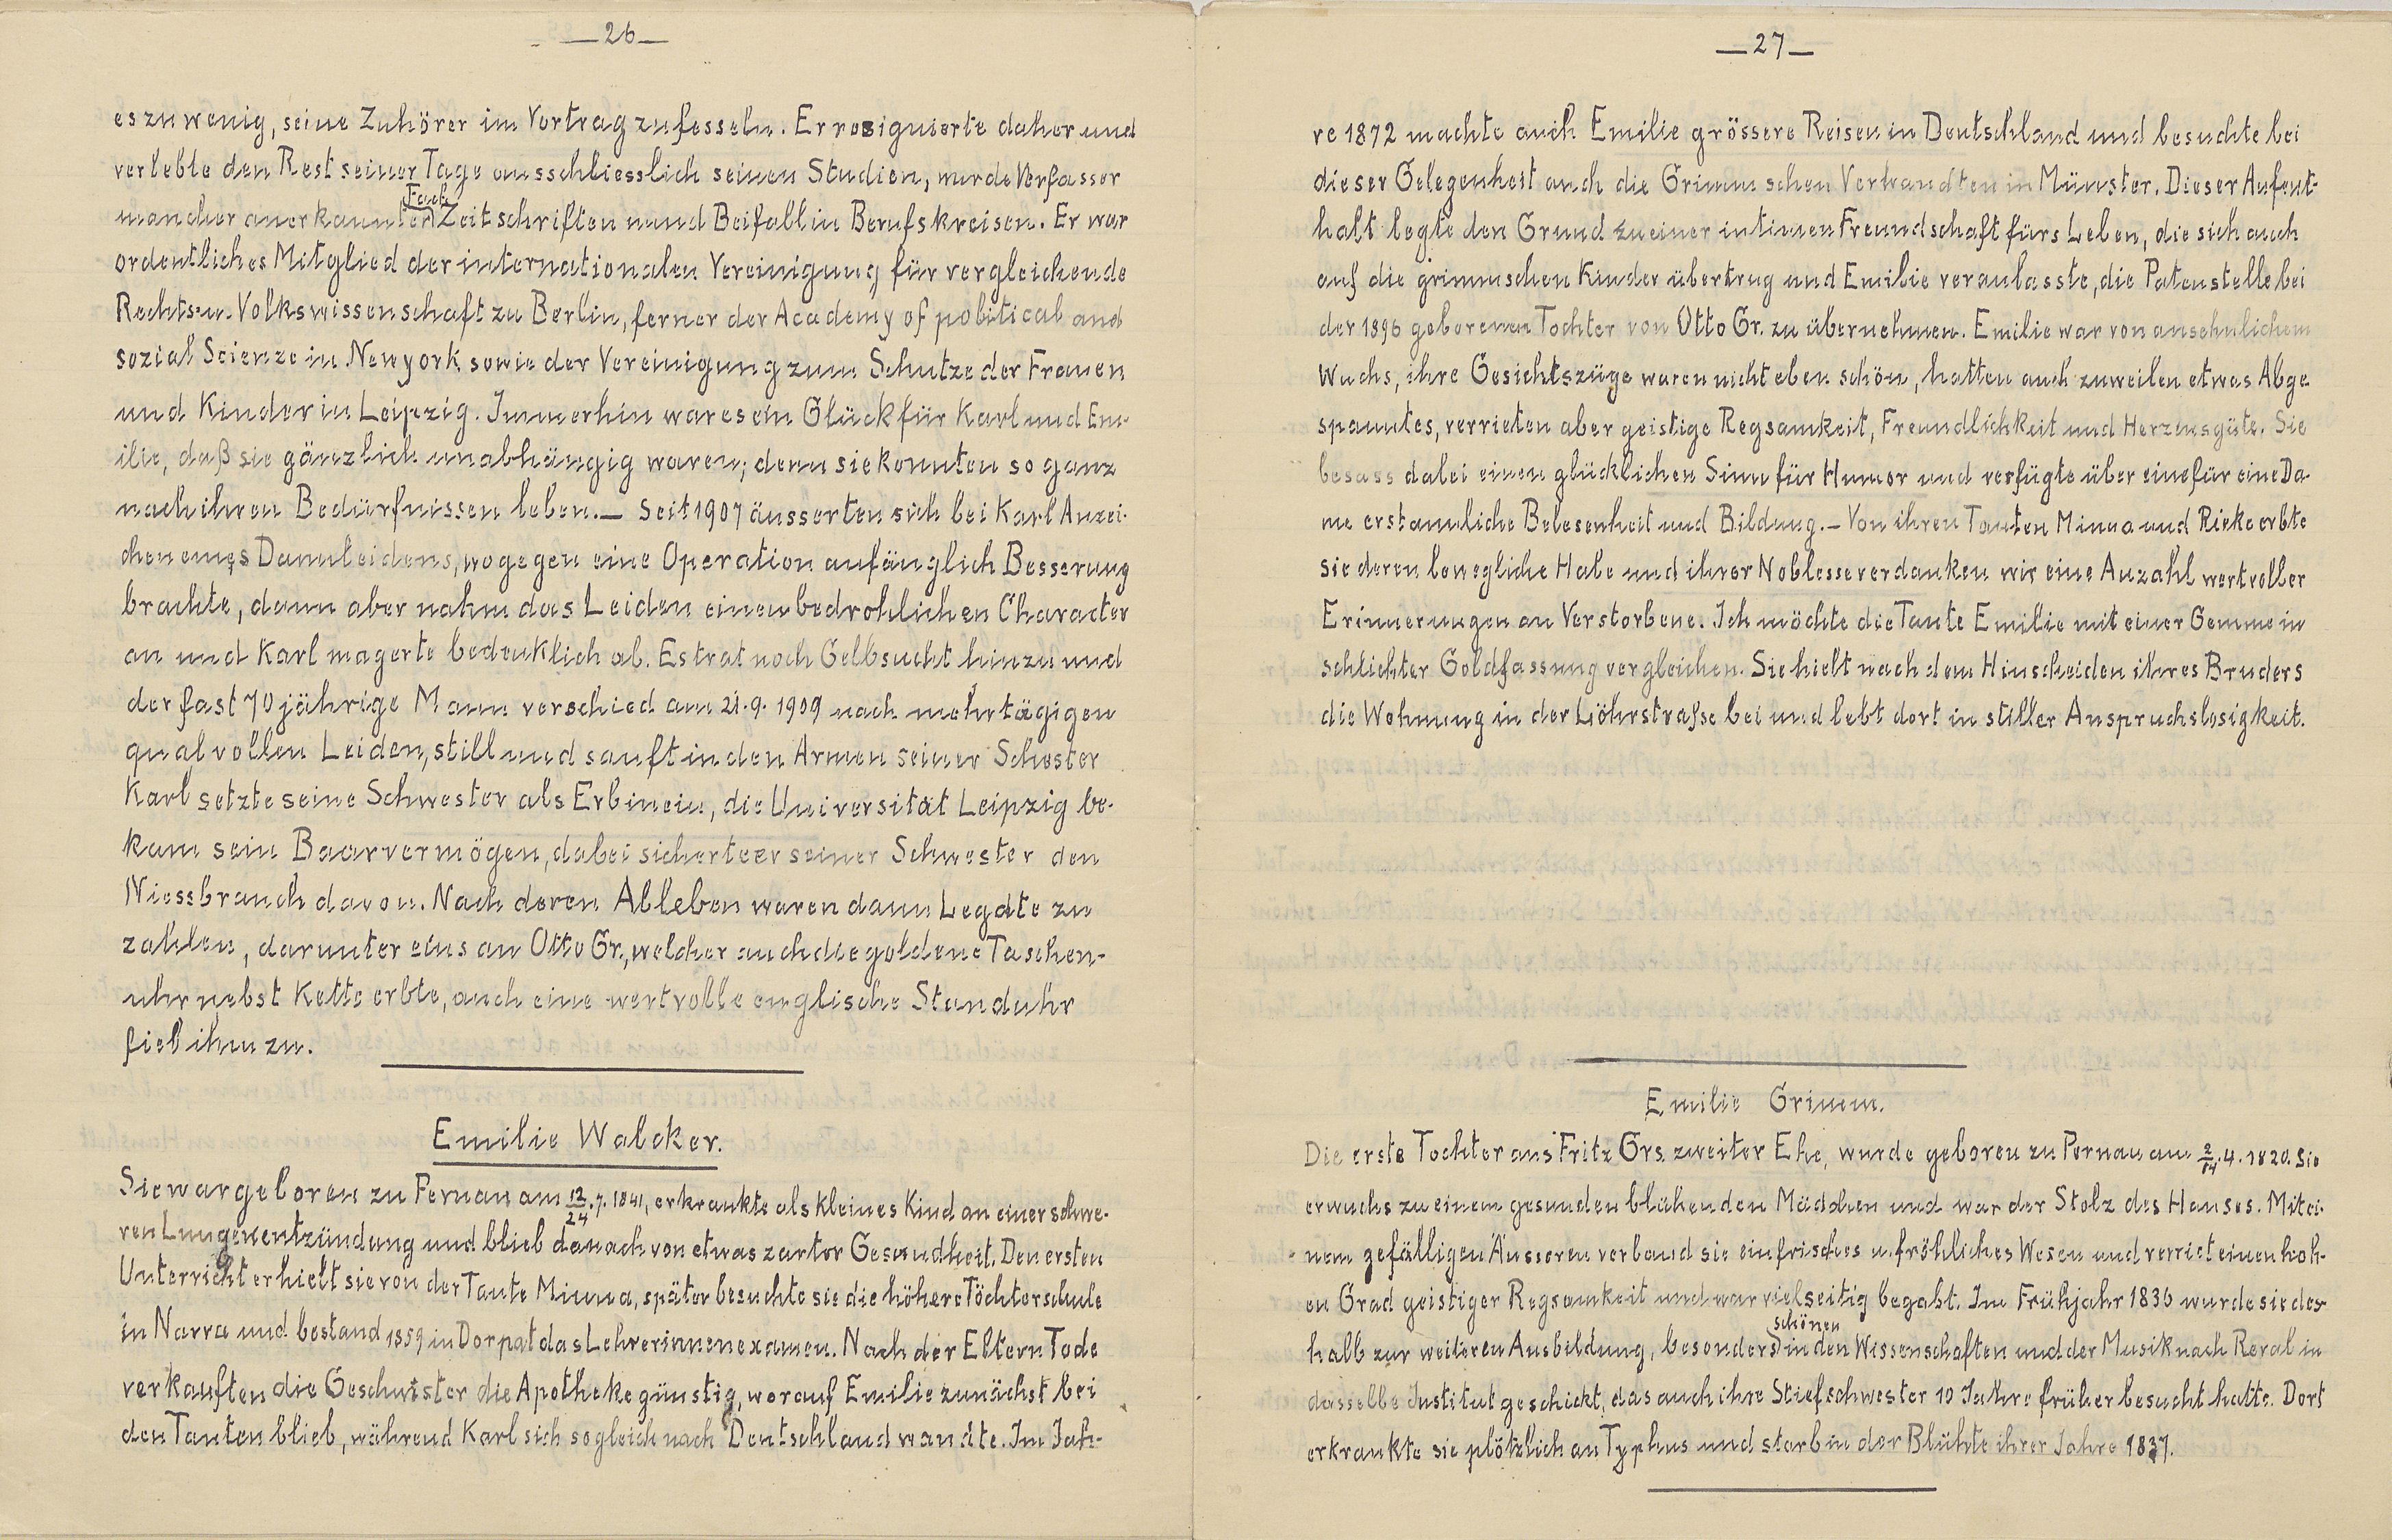 — 26 —
es zu wenig, seine Zuhörer im Vortrag zu fesseln. Er resignierte daher und
verlebte den Rest seiner Tage ausschliesslich seinen Studien, wurde Verfasser
Fach
mancher anerkannter Zeitschriften und Beifall in Berufskreisen. Er war
ordentliches Mitglied der internationalen Vereinigung für vergleichende
Rechts- u. Volkswissenschaft zu Berlin, ferner der Academy of political and
sozial Scienze in Newyork sowie der Vereinigung zum Schutze der Frauen
und Kinder in Leipzig. Immerhin war es ein Glück für Karl und Em-
ilie, daß sie gänzlich unabhängig waren; denn sie konnten so ganz
nach ihren Bedürfnissen leben. — Seit 1907 äusserten sich bei Karl Anzei-
chen eines Darmleidens, wogegen eine Operation anfänglich Besserung
brachte, dann aber nahm das Leiden einen bedrohlichen Character
an und Karl magerte bedenklich ab. Es trat noch Gelbsucht hinzu und
der fast 70 jährige Mann verschied am 21.9.1909 nach mehrtägigen
qualvollen Leiden, still und sanft in den Armen seiner Schester
Karl setzte seine Schwester als Erbin ein, die Universität Leipzig be-
kam sein Baarvermögen, dabei sicherte er seiner Schwester den
Niessbrauch davon. Nach deren Ableben waren dann Legate zu
zahlen, darunter eins an Otto Gr., welcher auch die goldene Taschen-
uhr nebst Kette erbte, auch eine wertvolle englische Standuhr
fiel ihm zu.
Emilie Walcker.
Sie war geboren zu Pernau am 12/24.7.1841, erkrankte als kleines Kind an einer schwe-
ren Lungenentzündung und blieb danach von etwas zarter Gesundheit. Den ersten
Unterricht erhielt sie von der Tante Minna, später besuchte sie die höhere Töchterschule
in Narva und bestand 1859 in Dorpat das Lehrerinnenexamen. Nach der Eltern Tode
verkauften die Geschwister die Apotheke günstig, worauf Emilie zunächst bei
den Tanten blieb, während Karl sich sogleich nach Deutschland wandte. Im Jah-
— 27 —
re 1872 machte auch Emilie grössere Reisen in Deutschland und besuchte bei
dieser Gelegenheit auch die Grimmschen Verwandten in Münster. Dieser Aufent-
halt legte den Grund zu einer intimen Freundschaft fürs Leben, die sich auch
auf die grimmschen Kinder übertrug und Emilie veranlasste, die Patenstelle bei
der 1896 geborenen Tochter von Otto Gr. zu übernehmen. Emilie war von ansehnlichem
Wuchs, ihre Gesichtszüge waren nicht eben schön, hatten auch zuweilen etwas Abge
spanntes, verrieten aber geistige Regsamkeit, Freundlichkeit und Herzensgüte. Sie
besass dabei einen glücklichen Sinn für Humor und verfügte über eine für eine Da-
me erstaunliche Belesenheit und Bildung. — Von ihren Tanten Minna und Rieke erbte
sie deren bewegliche Habe und ihrer Noblesse verdanken wir eine Anzahl wertvoller
Erinnerungen an Verstorbene. Ich möchte die Tante Emilie mit einer Gemme in
schlichter Goldfassung vergleichen. Sie hielt nach dem Hinscheiden ihres Bruders
die Wohnung in der Löhrstraße bei und lebt dort in stiller Anspruchslosigkeit.
Emilie Grimm.
Die erste Tochter aus Fritz Grs. zweiter Ehe, wurde geboren zu Pernau am 2/14.4.1820. Sie
erwuchs zu einem gesunden blühenden Mädchen und war der Stolz des Hauses. Mit ei-
nem gefälligen Äusseren verband sie ein frisches u. fröhliches Wesen und verriet einen hoh-
en Grad geistiger Regsamkeit und war vielseitig begabt. Im Frühjahr 1836 wurde sie des-
schönen
halb zur weiteren Ausbildung, besonders in den Wissenschaften und der Musik nach Reval in
dasselbe Institut geschickt, das auch ihre Stiefschwester 10 Jahre früher besucht hatte. Dort
erkrankte sie plötzlich an Typhus und starb in der Blühte ihrer Jahre 1837.